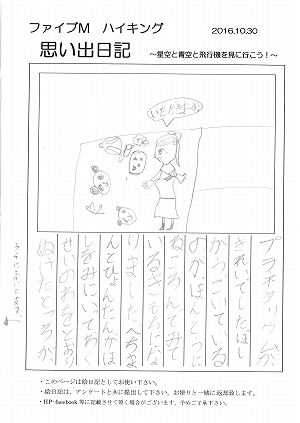 ファイブM ハイキング
2016.10.30
思い出日記
～星空と青空と飛行機を見に行こう！～
いただきまーす
プラネタリウムが、
きれいでしたほし
がかっこいている
のがほんとうに
ねころんでみて
いるきもちにな
りましたへちま
んとひょんたんかほ
しをみにいてわく
せいのわをとおり
ぬけたところが、
・このページは絵日記としてお使い下さい。
・絵日記は、アンケートと共に提出して下さい。お便りと一緒に返却致します。
・HP・facebook 等に記載させて頂く場合がございます。予めご了承下さい。